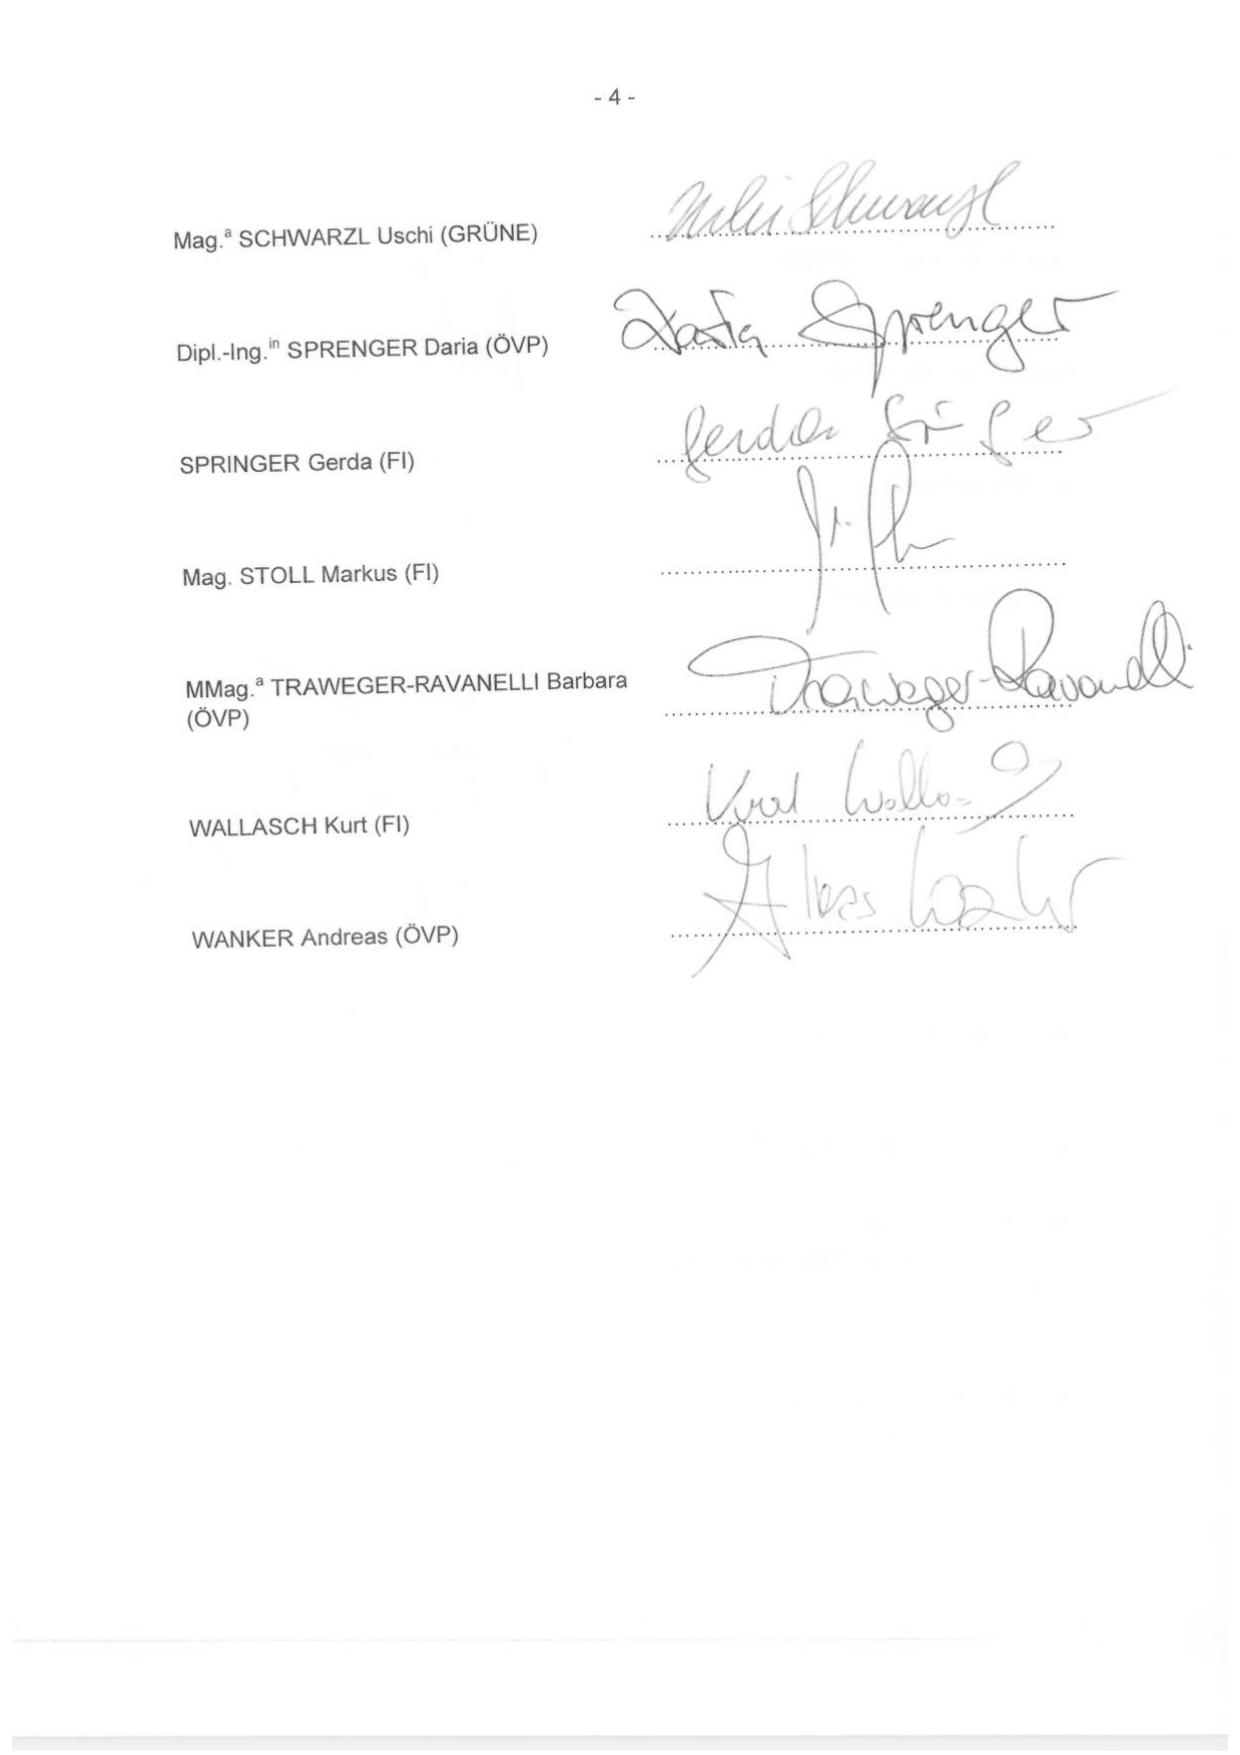 - 4 -
Mag.ª SCHWARZL Uschi (GRÜNE) Uschi Schwarzl
Dipl.-Ing.ⁱⁿ SPRENGER Daria (ÖVP) Daria Sprenger
SPRINGER Gerda (FI) Gerda
Mag. STOLL Markus (FI)
MMag.ª TRAWEGER-RAVANELLI Barbara Traweger-Ravanelli
(ÖVP)
WALLASCH Kurt (FI) Kurt
WANKER Andreas (ÖVP)